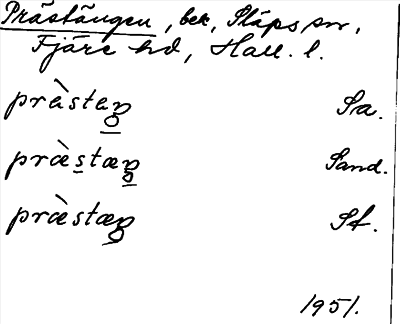 Prästängen, bek, Släps sn,
Fjäre hd, Hall. l.
prὰstaŋ Sa.
præ̀stæŋ Sand.
præ̀stæŋ St.
1951.